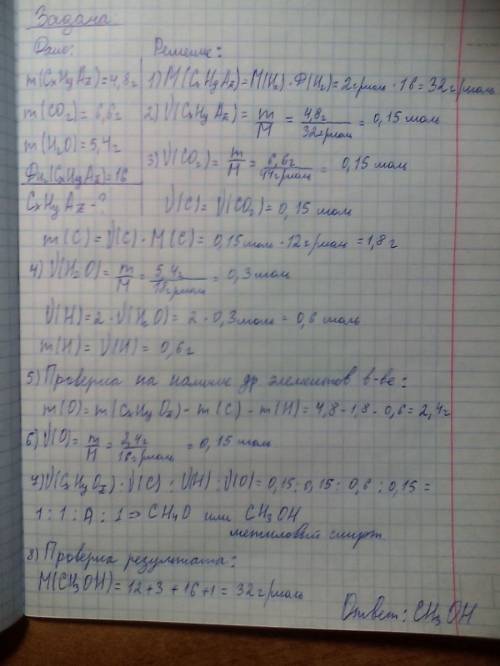 Задача
Дано:
Решение:
m(CxHyAz)=4,8г
m(CO₂)=6,6г
m(H₂O)=5,4г
Dн₂(CxHyAz)=16
CxHyAz-?
1) M(CxHyAz)=M(H₂)·D(H₂)=2г/моль·16=32г/моль
2) ν(CxHyAz)=m/M=4,8г/32г/моль=0,15 моль
3) ν(CO₂)=m/M=6,6г/44г/моль=0,15 моль
ν(C)=ν(CO₂)=0,15 моль
m(C)=ν(C)·M(C)=0,15моль·12г/моль=1,8г
4) ν(H₂O)=m/M=5,4г/18г/моль=0,3моль
ν(H)=2·ν(H₂O)=2·0,3моль=0,6 моль
m(H)=ν(H)=0,6г
5) Проверка на наличие др. элементов в-ве:
m(O)=m(CxHyOz)-m(C)-m(H)=4,8-1,8-0,6=2,4г
6) ν(O)=m/M=2,4г/16г/моль=0,15 моль
7) ν(CxHyOz):ν(C):ν(H):ν(O)=0,15:0,15:0,6:0,15=
1:1:4:1⇒CH₄O или CH₃OH
метиловый спирт
8) Проверка результата:
M(CH₃OH)=12+3+16+1=32г/моль
Ответ: CH₃OH